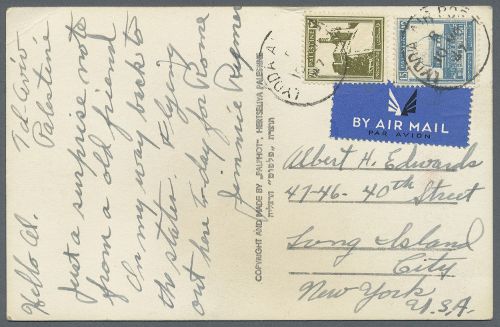 Tel Aviv
Palestine
Hello Al.
Just a surprise note
from a old friend
On my way back to
the states. flying
out here to-day for Rome
Jimmie Rymer
COPYRIGHT AND MADE BY „PALPHOT", HERTSELIYA PALESTINE
תוצרת „פלפוט" הרצליה
PALESTINE
LYDDA AIR
LYDDA AIR PORT
BY AIR MAIL
PAR AVION
Albert H. Edwards
47-46- 40th Street
Long Island
City
New York
U.S.A.